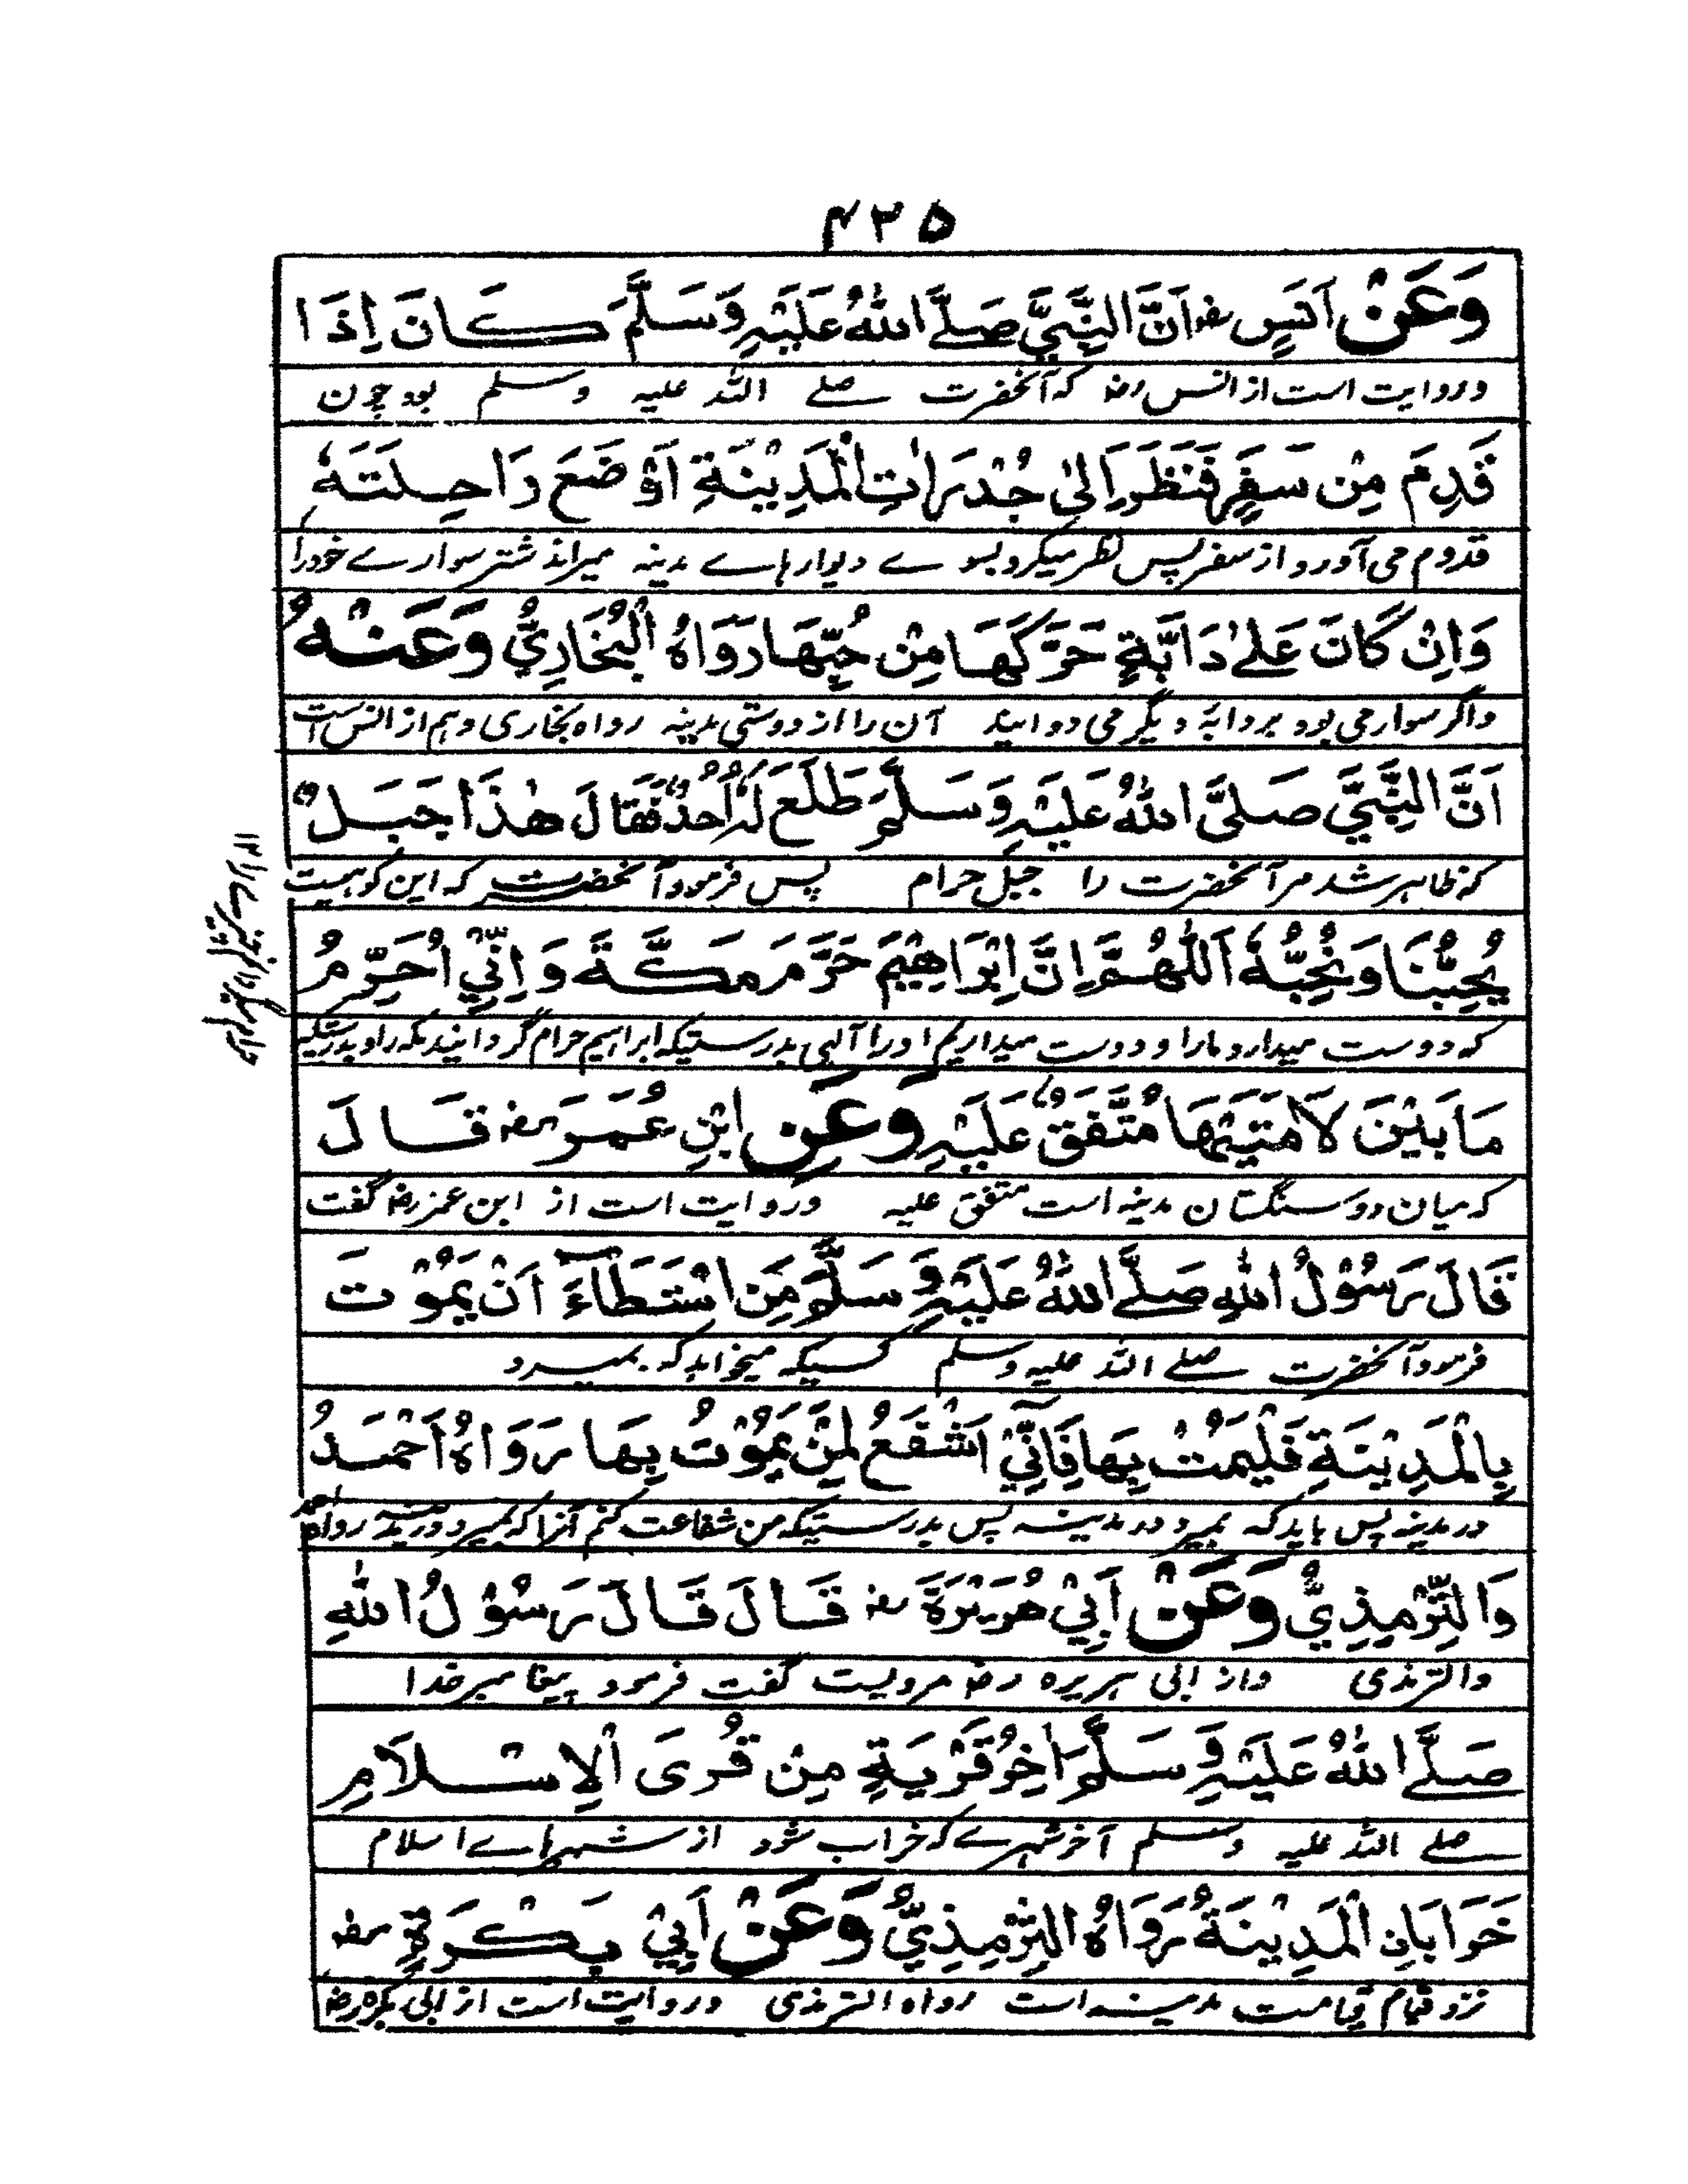 ۴۲۵
وَعَنْ اَنَسٍ رض اَنَّ النَّبِيَّ صَلَّے اللّٰهُ عَلَيْهِ وَسَلَّمَ كَانَ اِذَا
و روایت است از انس رض که آنحضرت صلے اللہ علیه وسلم بود چون
قَدِمَ مِنْ سَفَرٍ فَنَظَرَ اِلیٰ جُدْرَاتِ الْمَدِيْنَةِ اَوْضَعَ رَاحِلَتَهٗ
قدوم می آورد از سفر پس نظر میکرد بسوے دیوارهاے مدینه میراند شتر سوارے خود را
وَاِنْ كَانَ عَلیٰ دَابَّةٍ حَرَّكَهَا مِنْ حُبِّهَا رَوَاهُ الْبُخَارِيُّ وَعَنْهُ
و اگر سوار می بود بر دابهٔ دیگر می دوانید آن را از دوستی مدینه رواه بخاری و هم از انس است
اَنَّ النَّبِيَّ صَلَّى اللّٰهُ عَلَيْهِ وَسَلَّمَ طَلَعَ لَهٗ اُحُدٌ فَقَالَ هٰذَا جَبَلٌ
که ظاهر شد مر آنحضرت را جبل حرام پس فرمود آنحضرت که این کوهیست
يُحِبُّنَا وَنُحِبُّهٗ اَللّٰهُمَّ اِنَّ اِبْرَاهِيْمَ حَرَّمَ مَكَّةَ وَاِنِّيْ اُحَرِّمُ
که دوست میدارد مارا و دوست میداریم اورا آلهی بدرستیکه ابراهیم حرام گردانید مکه را و بدرستیکه
مَا بَيْنَ لَا مَتَيْهَا مُتَّفَقٌ عَلَيْهِ وَعَنِ ابْنِ عُمَرَ رض قَالَ
که میان دو سنگستان مدینه است متفق علیه و روایت است از ابن عمر رض گفت
قَالَ رَسُوْلُ اللّٰهِ صَلَّے اللّٰهُ عَلَيْهِ وَسَلَّمَ مَنِ اسْتَطَاءَ اَنْ يَمُوْتَ
فرمود آنحضرت صلے اللہ علیه وسلم کسیکه میخواهد که بمیرد
بِالْمَدِيْنَةِ فَلْيَمُتْ بِهَا فَاِنِّيْ اَشْفَعُ لِمَنْ يَمُوْتُ بِهَا رَوَاهُ اَحْمَدُ
در مدینه پس باید که بمیرد در مدینه پس بدرستیکه من شفاعت کنم آنرا که بمیرد در مدینه رواه احمد
وَالتِّرْمِذِيُّ وَعَنْ اَبِيْ هُرَيْرَةَ رض قَالَ قَالَ رَسُوْلُ اللّٰهِ
والترمذی و از ابی هریره رض مرویست گفت فرمود پیغامبر خدا
صَلَّے اللّٰهُ عَلَيْهِ وَسَلَّمَ اٰخِرُ قَرْيَةٍ مِنْ قُرَى الْاِسْلَامِ
صلے اللہ علیه وسلم آخر شهرے که خراب شود از شهرهاے اسلام
خَرَابَانِ الْمَدِيْنَةُ رَوَاهُ التِّرْمِذِيُّ وَعَنْ اَبِيْ بَكْرَةَ رض
نزد قیام قیامت مدینه است رواه الترمذی و روایت است از ابی بکره رض